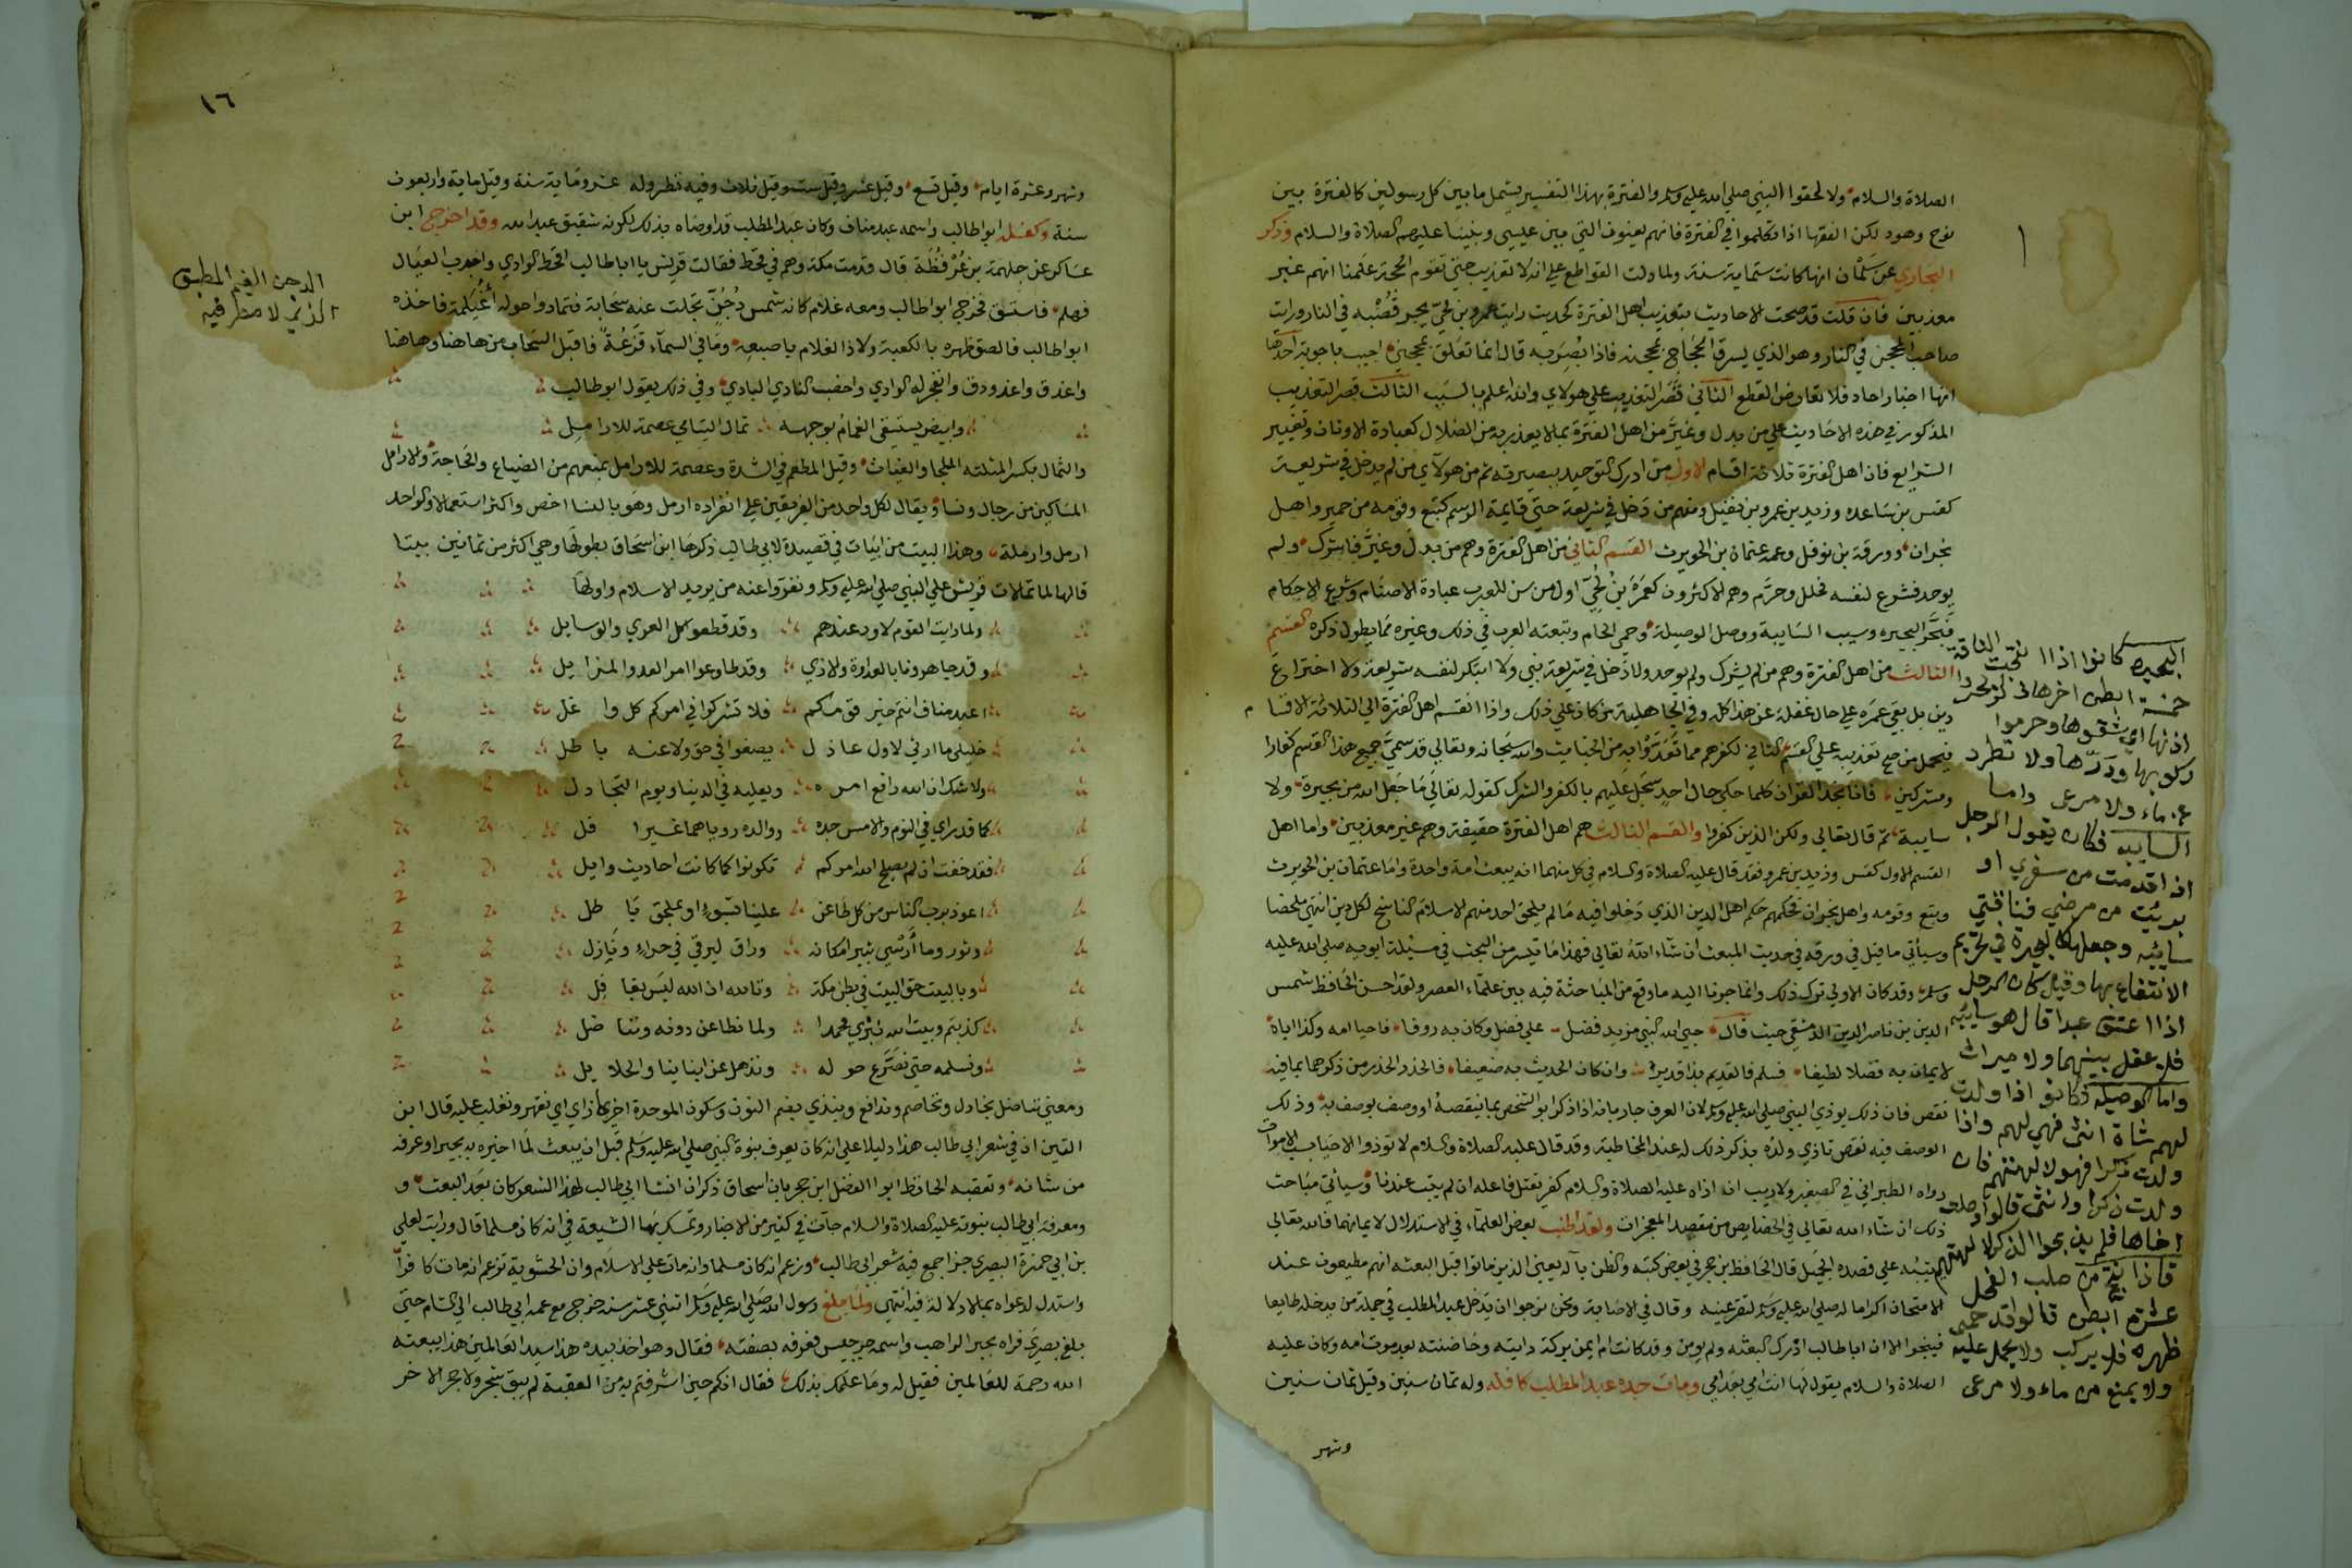 الصلاة والسلام ولا لحقوا النبي صلي الله عليه وسلم والفترة بهذا التفسير يشمل ما بين كل رسولين كالفترة بين
نوح وهود لكن الفقها اذا تكلموا في الفترة فانهم يعنون التي بين عيسي ونبينا عليهم الصلاة والسلام وذكر
البخاري عن سلمان انها كانت ستماية سنة ولما دلت القواطع علي انه لا تعذيب حتي تقوم الحجة علمنا انهم غير
معذبين فان قلت قد صحت الاحاديث بتعذيب اهل الفترة كحديث رايت عمرو بن لحي يجر قصبه في النار ورايت
صاحب المحجن في النار وهو الذي يسرق الحجاج بمحجنه فاذا بصر به قال انما تعلق بمحجني اجيب باجوبة احدها
انها اخبار احاد فلا تعارض القطع الثاني قصر التعذيب علي هولاي والله اعلم بالسبب الثالث قصر التعذيب
المذكور في هذه الاحاديث علي من بدل وغير من اهل الفترة بما لا يعذر به من الضلال كعبادة الاوثان وتغيير
الشرايع فان اهل الفترة ثلاثة اقسام الاول من ادرك التوحيد ببصيرته ثم من هولاي من لم يدخل في شريعة
كقس بن ساعده وزيد بن عمرو بن نفيل ومنهم من دخل في شريعة حتي قايمة الرسم كتبع وقومه من حمير واهل
نجران وورقة بن نوفل وعمه عثمان بن الحويرث القسم الثاني من اهل الفترة وهم من بدل وغير فاشرك ولم
يوحد فشرع لنفسه فحلل وحرم وهم الاكثرون كعمرو بن لحي اول من سن للعرب عبادة الاصنام وشرع الاحكام
فبحر البحيره وسيب السايبة ووصل الوصيلة وحمي الحام وتبعته العرب في ذلك وغيره مما يطول ذكره القسم
الثالث من اهل الفترة وهم من لم يشرك ولم يوحد ولا دخل في شريعة نبي ولا ابتكر لنفسه شريعة ولا اختراع
دين بل بقي عمره علي حال غفلة عن هذا كله وفي الجاهلية من كان علي ذلك واذا انقسم اهل الفترة الي الثلاثة الاقسام
فيحمل من صح تعذيبه علي القسم الثاني لكفرهم مما تعدوا به من الخبايث والله سبحانه وتعالي قد سمي جميع هذا القسم كفارا
ومشركين فانا نجد القران كلما حكي حال احد سجل عليهم بالكفر والشرك كقوله تعالي ما جعل الله من بحيرة ولا
سايبة ثم قال تعالي ولكن الذين كفروا والقسم الثالث هم اهل الفترة حقيقة وهم غير معذبين واما اهل
القسم الاول كقس وزيد بن عمرو فقد قال عليه الصلاة والسلام في كل منهما انه يبعث امة واحدة واما عثمان بن الحويرث
وتبع وقومه واهل نجران فحكمهم حكم اهل الدين الذي دخلوا فيه ما لم يلحق احد منهم الاسلام الناسخ لكل دين انتهي ملخصا
وسيأتي ما قيل في ورقه في حديث المبعث ان شاء الله تعالي فهذا ما تيسر من البحث في مسئلة ابويه صلي الله عليه
وسلم وقد كان الاولي ترك ذلك وانما جرنا اليه ما وقع من المباحثة فيه بين علماء العصر ولقد احسن الحافظ شمس
الدين بن ناصر الدين الدمشقي حيث قال حبي الله النبي مزيد فضل علي فضل وكان به روفا فاحيا امه وكذا اباه
لايمان به فضلا لطيفا فسلم فالقديم بذا قدير وان كان الحديث به ضعيفا فالحذر الحذر من ذكرهما بما فيه
نقص فان ذلك يوذي النبي صلي الله عليه وسلم لان العرف جار بانه اذا ذكر ابو الشخص بما ينقصه او وصف بوصف به وذلك
الوصف فيه نقص تاذي ولده بذكر ذلك له عند المخاطبة وقد قال عليه الصلاة والسلام لا توذوا الاحيا بسبب الاموات
رواه الطبراني في الصغير ولا ريب ان اذاه عليه الصلاة والسلام كفر يقتل فاعله ان لم يتب عندنا وسيأتي مباحث
ذلك ان شاء الله تعالي في الخصايص من مقصد المعجزات ولقد اطنب بعض العلماء في الاستدلال لايمانهما فالله تعالي
يثيبه علي قصده الجميل قال الحافظ بن حجر في بعض كتبه والظن بآله يعني الذين ماتوا قبل البعثه انهم مطيعون عند
الامتحان اكراما له صلي الله عليه وسلم لتقر عينه وقال في الاصابة ونحن نرجوا ان يدخل عبد المطلب في جملة من يدخلها طايعا
فينجوا الا ان ابا طالب ادرك البعثه ولم يومن وقد كانت ام ايمن بركة دايته وحاضنته بعد موت امه وكان عليه
الصلاة والسلام يقول لها انت امي بعد امي ومات جده عبد المطلب كافله وله ثمان سنين وقيل ثمان سنين
وشهر
البحيره كانوا اذا انتجت الناقة
خمسة ابطن اخرها ذكر بحروا
اذنها اي شقوها وحرموا
ركوبها ودرها ولا تطرد
عن ماء ولا مرعى واما
السايبه فكان يقول الرجل
اذا قدمت من سفري او
برئت من مرضي فناقتي
سايبه وجعلها كالبحيرة في تحريم
الانتفاع بها وقيل كان الرجل
اذا اعتق عبدا قال هو سايبه
فلا عقل بينهما ولا ميراث
واما الوصيله فكانوا اذا ولدت
لهم شاة انثى فهي لهم واذا
ولدت ذكرا فهو لالهتهم فان
ولدت ذكرا وانثى قالوا وصلت
اخاها فلم يذبحوا الذكر لالهتهم
فاذا نتج من صلب الفحل
عشرة ابطن قالوا قد حمى
ظهره فلا يركب ولا يحمل عليه
ولا يمنع من ماء ولا مرعى
١٦
وشهر وعشرة ايام وقيل تسع وقيل عشر وقيل ست وقيل ثلاث وفيه نظر وله عشر وماية سنة وقيل ماية واربعون
سنة وكفله ابو طالب واسمه عبد مناف وكان عبد المطلب قد اوصاه بذلك لكونه شقيق عبد الله وقد اخرج ابن
عساكر عن جلهمة بن عرفطة قال قدمت مكة وهم في قحط فقالت قريش يا ابا طالب اقحط الوادي واجدب العيال
فهلم فاستسق فخرج ابو طالب ومعه غلام كانه شمس دجن تجلت عنه سحابة قتماء وحوله اغيلمة فاخذه
ابو طالب فالصق ظهره بالكعبة ولاذ الغلام باصبعه وما في السماء قزعة فاقبل السحاب من هاهنا وهاهنا
واغدق واغدودق وانفجر له الوادي واخصب النادي البادي وفي ذلك يقول ابو طالب
وابيض يستسقي الغمام بوجهه ثمال اليتامي عصمة للارامل
والثمال بكسر المثلثه الملجا والغياث وقيل المطعم في الشدة وعصمة للارامل يمنعهم من الضياع والحاجة والارامل
المساكين من رجال ونساء ويقال لكل واحد من الفريقين علي انفراده ارمل وهو بالنسا اخص واكثر استعمالا والواحد
ارمل وارملة وهذا البيت من ابيات في قصيدة لابي طالب ذكرها ابن اسحاق بطولها وهي اكثر من ثمانين بيتا
قالها لما تمالات قريش علي النبي صلي الله عليه وسلم ونفروا عنه من يريد الاسلام واولها
ولما رايت القوم لاود عندهم وقد قطعوا كل العري والوسايل
وقد جاهرونا بالعداوة والاذي وقد طاوعوا امر العدو المزايل
اعبد مناف انتم خير قومكم فلا تشركوا في امركم كل واغل
خليلي ما ارني لاول عاذل بصغوا في حق ولا عنه باطل
ولا شك ان الله رافع امره ويعليه في الدنيا ويوم التجادل
كما قد راي في اليوم والامس جده ووالده روياهما غير افل
فقد خفت ان لم يصلح الله امركم تكونوا كما كانت احاديث وايل
اعوذ برب الناس من كل طاعن علينا بسوء او ملحق باطل
وثور وما ارسي ثبير امكانه وراق ليرقي في حراء ونازل
وبالبيت حق البيت في بطن مكة وتالله ان الله ليس بغافل
كذبتم وبيت الله نبزي محمدا ولما نطاعن دونه ونناضل
ونسلمه حتي نصرع حوله ونذهل عن ابناينا والحلايل
ومعني نناضل نجادل ونخاصم وندافع وينبذي بضم النون وسكون الموحدة اخره زاي اي نقهر ونغلب عليه قال ابن
التين ان في شعر ابي طالب هذا دليلا علي انه كان يعرف بنوة النبي صلي الله عليه وسلم قبل ان يبعث لما اخبره به بحيرا وغيره
من شانه وتعقبه الحافظ ابو الفضل ابن حجر بان اسحاق ذكر ان انشا ابي طالب لهذا الشعر كان بعد البعث و
ومعرفة ابي طالب بنبوته عليه الصلاة والسلام جات في كثير من الاخبار وتمسك بها الشيعة في انه كان مسلما قال ورايت لعلي
بن ابي حمزة البصري جزا جمع فيه شعر ابي طالب وزعم انه كان مسلما وانه مات علي الاسلام وان الحشوية تزعم انه مات كافرا
واستدل لدعواه بما لا دلالة فيه انتهي ولما بلغ رسول الله صلي الله عليه وسلم اثنتي عشر سنة خرج مع عمه ابي طالب الي الشام حتي
بلغ بصري فراه بحيرا الراهب واسمه جرجيس فعرفه بصفته فقال وهو اخذ بيده هذا سيد العالمين هذا يبعثه
الله رحمة للعالمين فقيل له وما علمك بذلك فقال انكم حين اشرفتم به من العقبة لم يبق شجر ولا حجر الا خر
الدجن الغيم المطبق
الذي لا مطر فيه